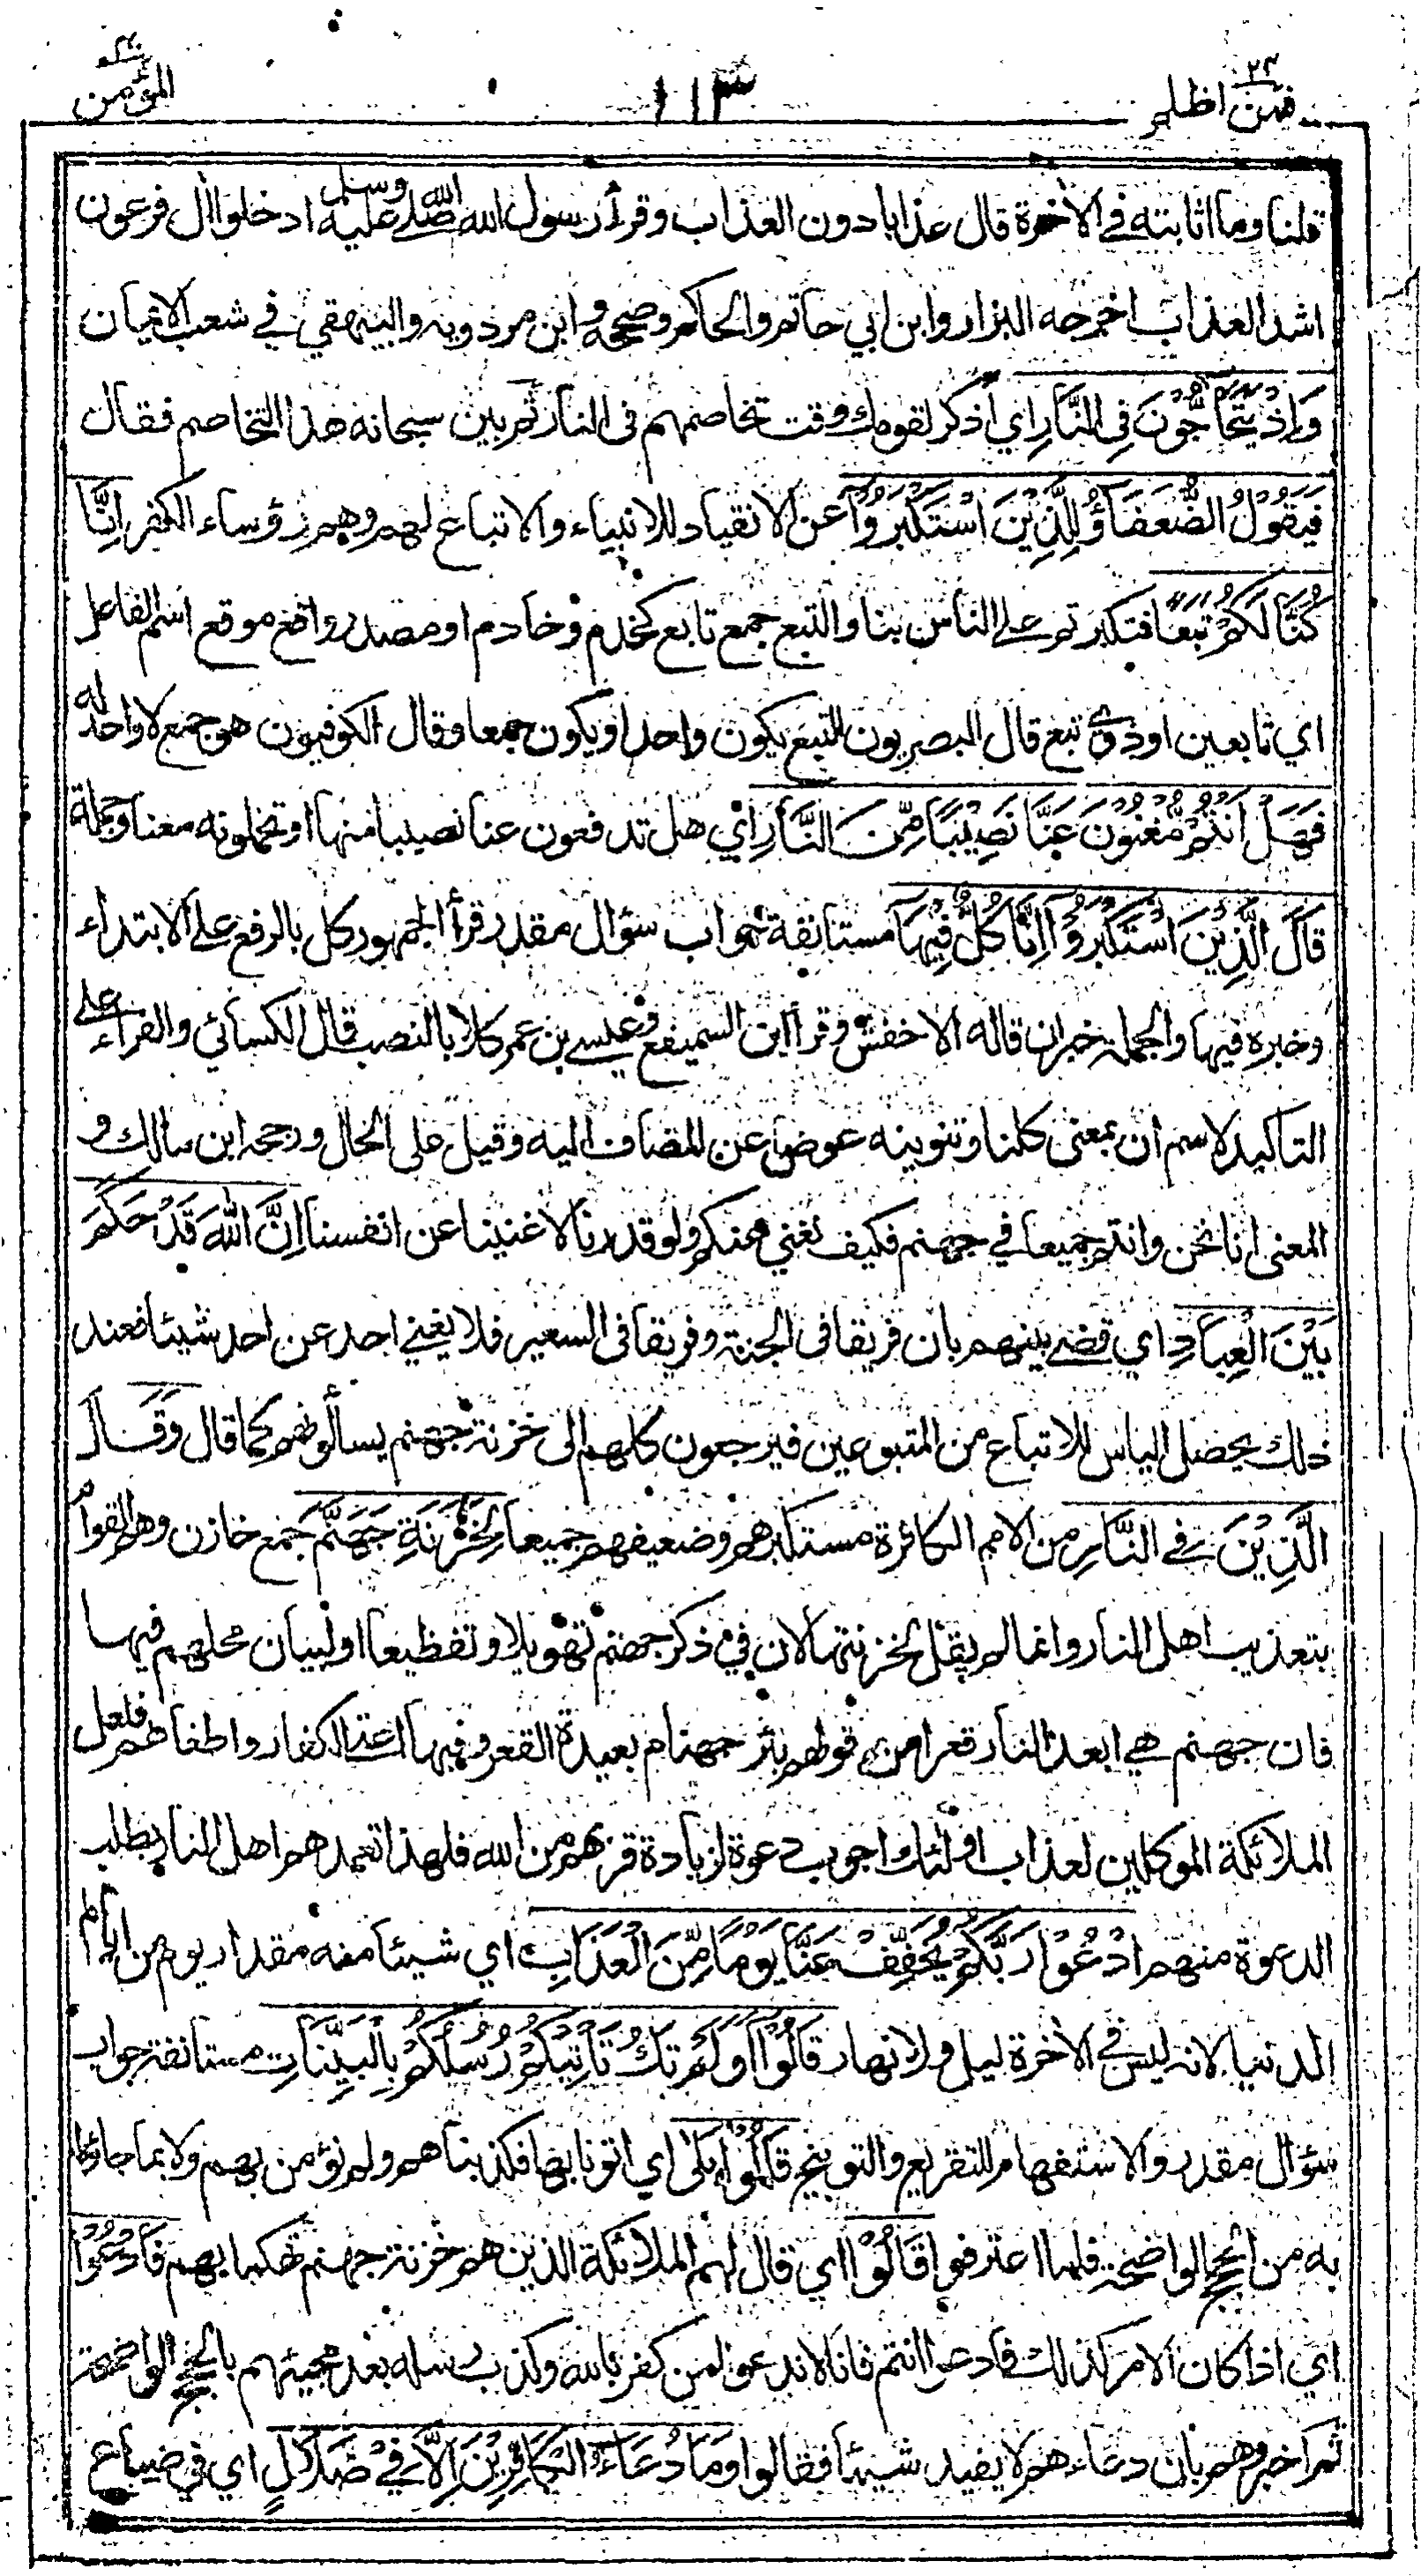 فمن اظلم ٢٤
١١٣
المؤمن ٤٠
قلنا وما اثابته في الأخرة قال عذابا دون العذاب وقرأ رسول الله صلى الله عليه وسلم ادخلوا آل فرعون
اشد العذاب اخرجه البزار وابن ابي حاتم والحاكم وصححه وابن مردويه والبيهقي في شعب الايمان
وَإِذْ يَتَحَاجُّونَ فِي النَّارِ اي اذكر لقومك وقت تخاصمهم فى النار ثم بين سبحانه هذا التخاصم فقال
فَيَقُولُ الضُّعَفَاؤُ لِلَّذِيْنَ اسْتَكْبَرُوْا عن الانقياد للانبياء والاتباع لهم وهم رؤساء الكفر إِنَّا
كُنَّا لَكُمْ تَبَعًا فتكبرتم على الناس بنا والتبع جمع تابع كخدم وخادم او مصدر واقع موقع اسم الفاعل
اي تابعين او ذوي تبع قال البصريون التبع يكون واحدا ويكون جمعا وقال الكوفيون هو جمع لا واحد له
فَهَلْ أَنْتُمْ مُّغْنُوْنَ عَنَّا نَصِيْبًا مِّنَ النَّارِ اي هل تدفعون عنا نصيبا منها او تحملونه معنا وجملة
قَالَ الَّذِيْنَ اسْتَكْبَرُوْا إِنَّا كُلٌّ فِيْهَا مستانفة جواب سؤال مقدر قرأ الجمهور كل بالرفع على الابتداء
وخبره فيها والجملة خبر ان قاله الاخفش وقرأ ابن السميفع وعيسى بن عمر كلا بالنصب قال الكسائي والفراء على
التاكيد لاسم ان بمعنى كلنا وتنوينه عوض عن المضاف اليه وقيل على الحال ورجحه ابن مالك و
المعنى انا نحن وانتم جميعا في جهنم فكيف نغني عنكم ولو قدرنا لاغنينا عن انفسنا إِنَّ اللهَ قَدْ حَكَمَ
بَيْنَ الْعِبَادِ اي قضى بينهم بان فريقا فى الجنة وفريقا فى السعير فلا يغني احد عن احد شيئا فعند
ذلك يحصل الياس للاتباع من المتبوعين فيرجعون كلهم الى خزنة جهنم يسألونهم كما قال وَقَالَ
الَّذِيْنَ فِي النَّارِ من الامم الكافرة مستكبرهم وضعيفهم جميعا لِخَزَنَةِ جَهَنَّمَ جمع خازن وهم القوام
بتعذيب اهل النار وانما لم يقل لخزنتها لان في ذكر جهنم تهويلا وتفظيعا او لبيان محلهم فيها
فان جهنم هي ابعد النار قعرا من قولهم بئر جهنام بعيدة القعر وفيها اعتى الكفار واطغاهم فلعل
الملائكة الموكلين لعذاب اولئك اجوب دعوة لزيادة قربهم من الله فلهذا تعمدهم اهل النار بطلب
الدعوة منهم ادْعُوْا رَبَّكُمْ يُخَفِّفْ عَنَّا يَوْمًا مِّنَ الْعَذَابِ اي شيئا منه مقدار يوم من ايام
الدنيا لانه ليس في الأخرة ليل ولا نهار قَالُوْا أَوَلَمْ تَكُ تَأْتِيْكُمْ رُسُلُكُمْ بِالْبَيِّنَاتِ مستانفة جواب
سؤال مقدر والاستفهام للتقريع والتوبيخ قَالُوْا بَلَى اي اتونا بها فكذبناهم ولم نؤمن بهم ولا بما جاؤا
به من الحجج الواضحة فلما اعترفوا قَالُوْا اي قال لهم الملائكة الذين هم خزنة جهنم تهكما بهم فَادْعُوْا
اي اذا كان الامر كذلك فادعوا انتم فانا لا ندعو لمن كفر بالله وكذب رسله بعد مجيئهم بالحجج الواضحة
ثم اخبروهم بان دعاءهم لا يفيد شيئا فقالوا وَمَا دُعَاءُ الْكَافِرِيْنَ إِلَّا فِيْ ضَلَالٍ اي في ضياع